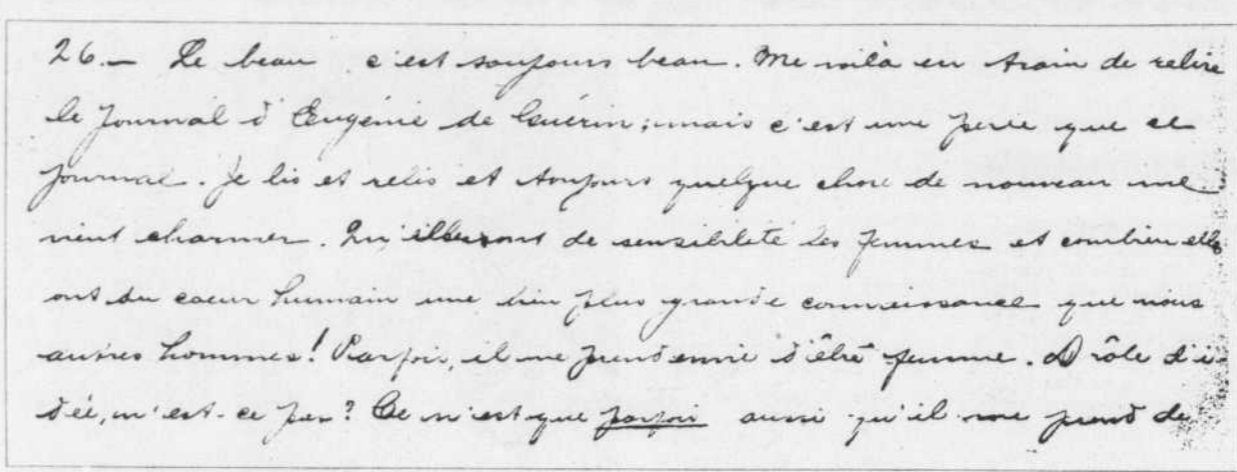 26.— Le beau c'est toujours beau. Me voilà en train de relire
le Journal d'Eugénie de Guérin; mais c'est une perle que ce
journal. Je lis et relis et toujours quelque chose de nouveau me
vient charmer. Qu'elles ont de sensibilité les femmes et combien elles
ont du coeur humain une bien plus grande connaissance que nous
autres hommes! Parfois, il me prend envie d'être femme. Drôle d'i-
dée, n'est-ce pas? Ce n'est que parfois aussi qu'il me prend de